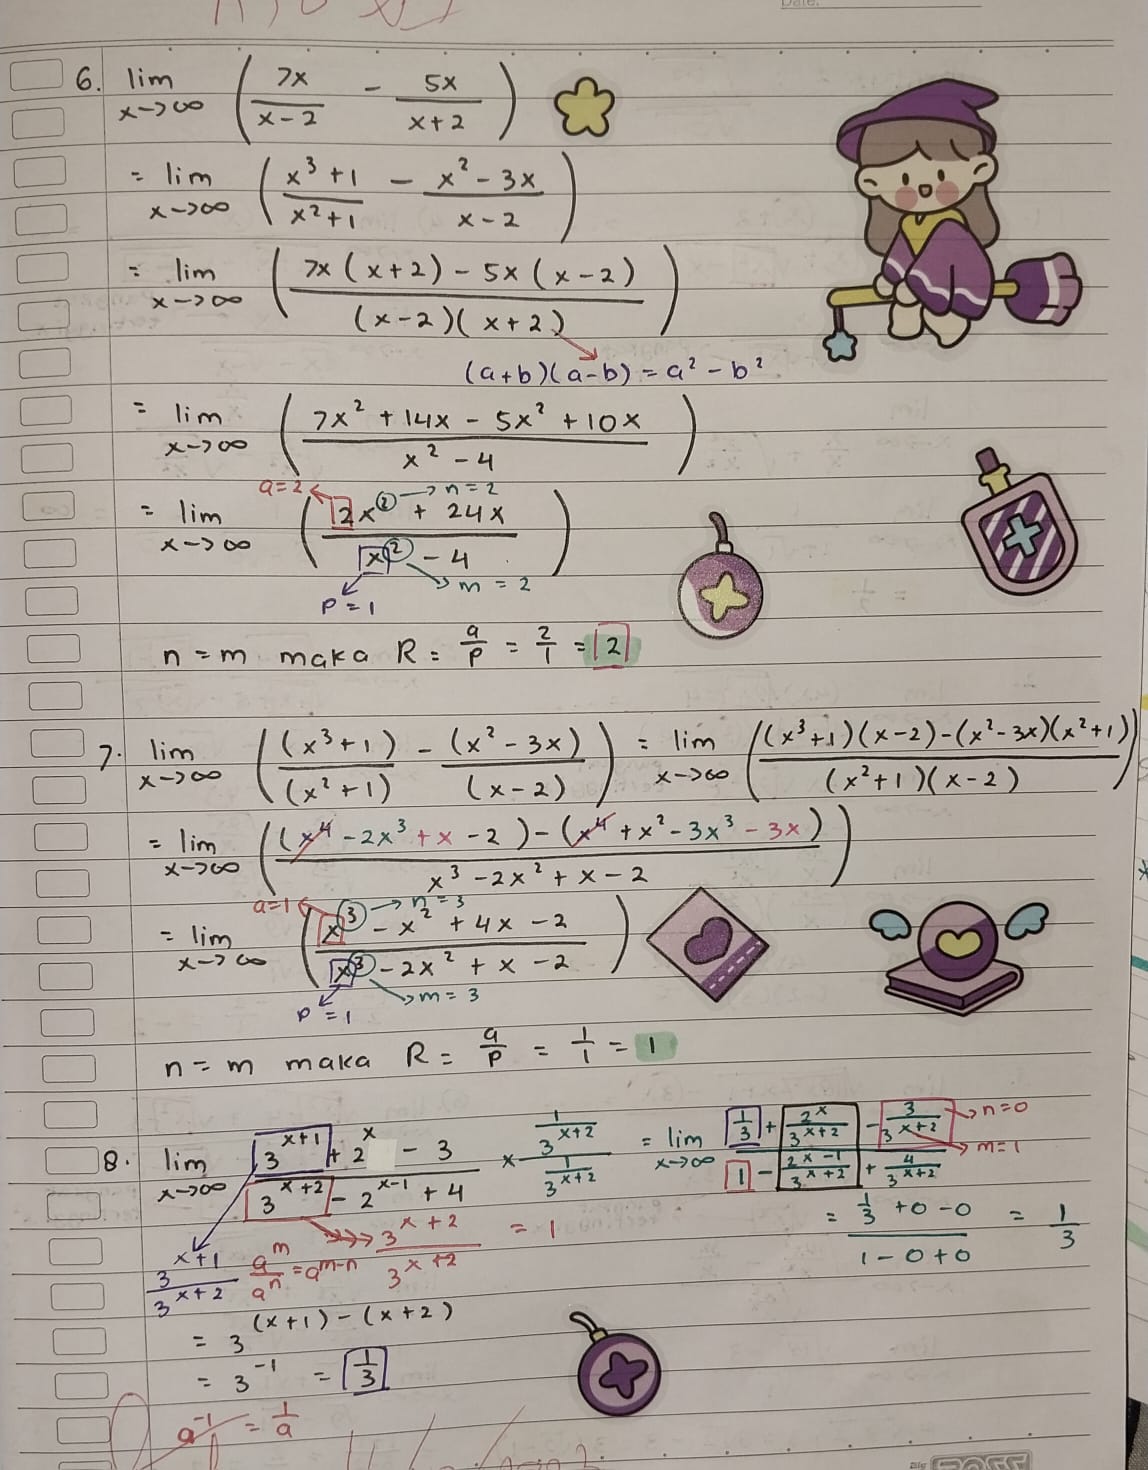 Date:
6. lim x→∞ (7x/(x-2) - 5x/(x+2))
= lim x→∞ ((x³+1)/(x²+1) - (x²-3x)/(x-2))
= lim x→∞ ((7x(x+2) - 5x(x-2))/((x-2)(x+2)))
(a+b)(a-b) = a² - b²
= lim x→∞ ((7x² + 14x - 5x² + 10x)/(x² - 4))
a=2 n=2
= lim x→∞ ((2x² + 24x)/(x² - 4))
p=1 m=2
n=m maka R = a/p = 2/1 = 2
7. lim x→∞ ((x³+1)/(x²+1) - (x²-3x)/(x-2)) = lim x→∞ (((x³+1)(x-2)-(x²-3x)(x²+1))/((x²+1)(x-2)))
= lim x→∞ (((x⁴ - 2x³ + x - 2) - (x⁴ + x² - 3x³ - 3x))/(x³ - 2x² + x - 2))
a=1 n=3
= lim x→∞ ((x³ - x² + 4x - 2)/(x³ - 2x² + x - 2))
p=1 m=3
n=m maka R = a/p = 1/1 = 1
8. lim x→∞ (3^(x+1) + 2^x - 3)/(3^(x+2) - 2^(x-1) + 4) × (1/3^(x+2))/(1/3^(x+2)) = lim x→∞ (1/3 + 2^x/3^(x+2) - 3/3^(x+2))/(1 - 2^(x-1)/3^(x+2) + 4/3^(x+2))
n=0
m=1
3^(x+1)/3^(x+2) a^m/a^n = a^(m-n) 3^(x+2)/3^(x+2) = 1
= (1/3 + 0 - 0)/(1 - 0 + 0) = 1/3
= 3^((x+1)-(x+2))
= 3^-1 = 1/3
a^-1 = 1/a